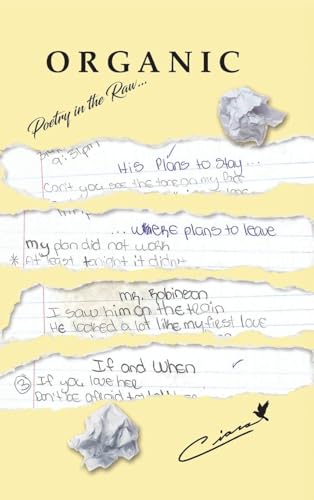 ORGANIC
Poetry in the Raw...
9:51pm
His Plans to Stay...
Can't you see the tone on my
...Where plans to leave
my plan did not work
* At least tonight it didn't
mr. Robinson
I saw him on the train
He looked a lot like my first love
If and When
③ If you love her
Don't be afraid to
Ciara